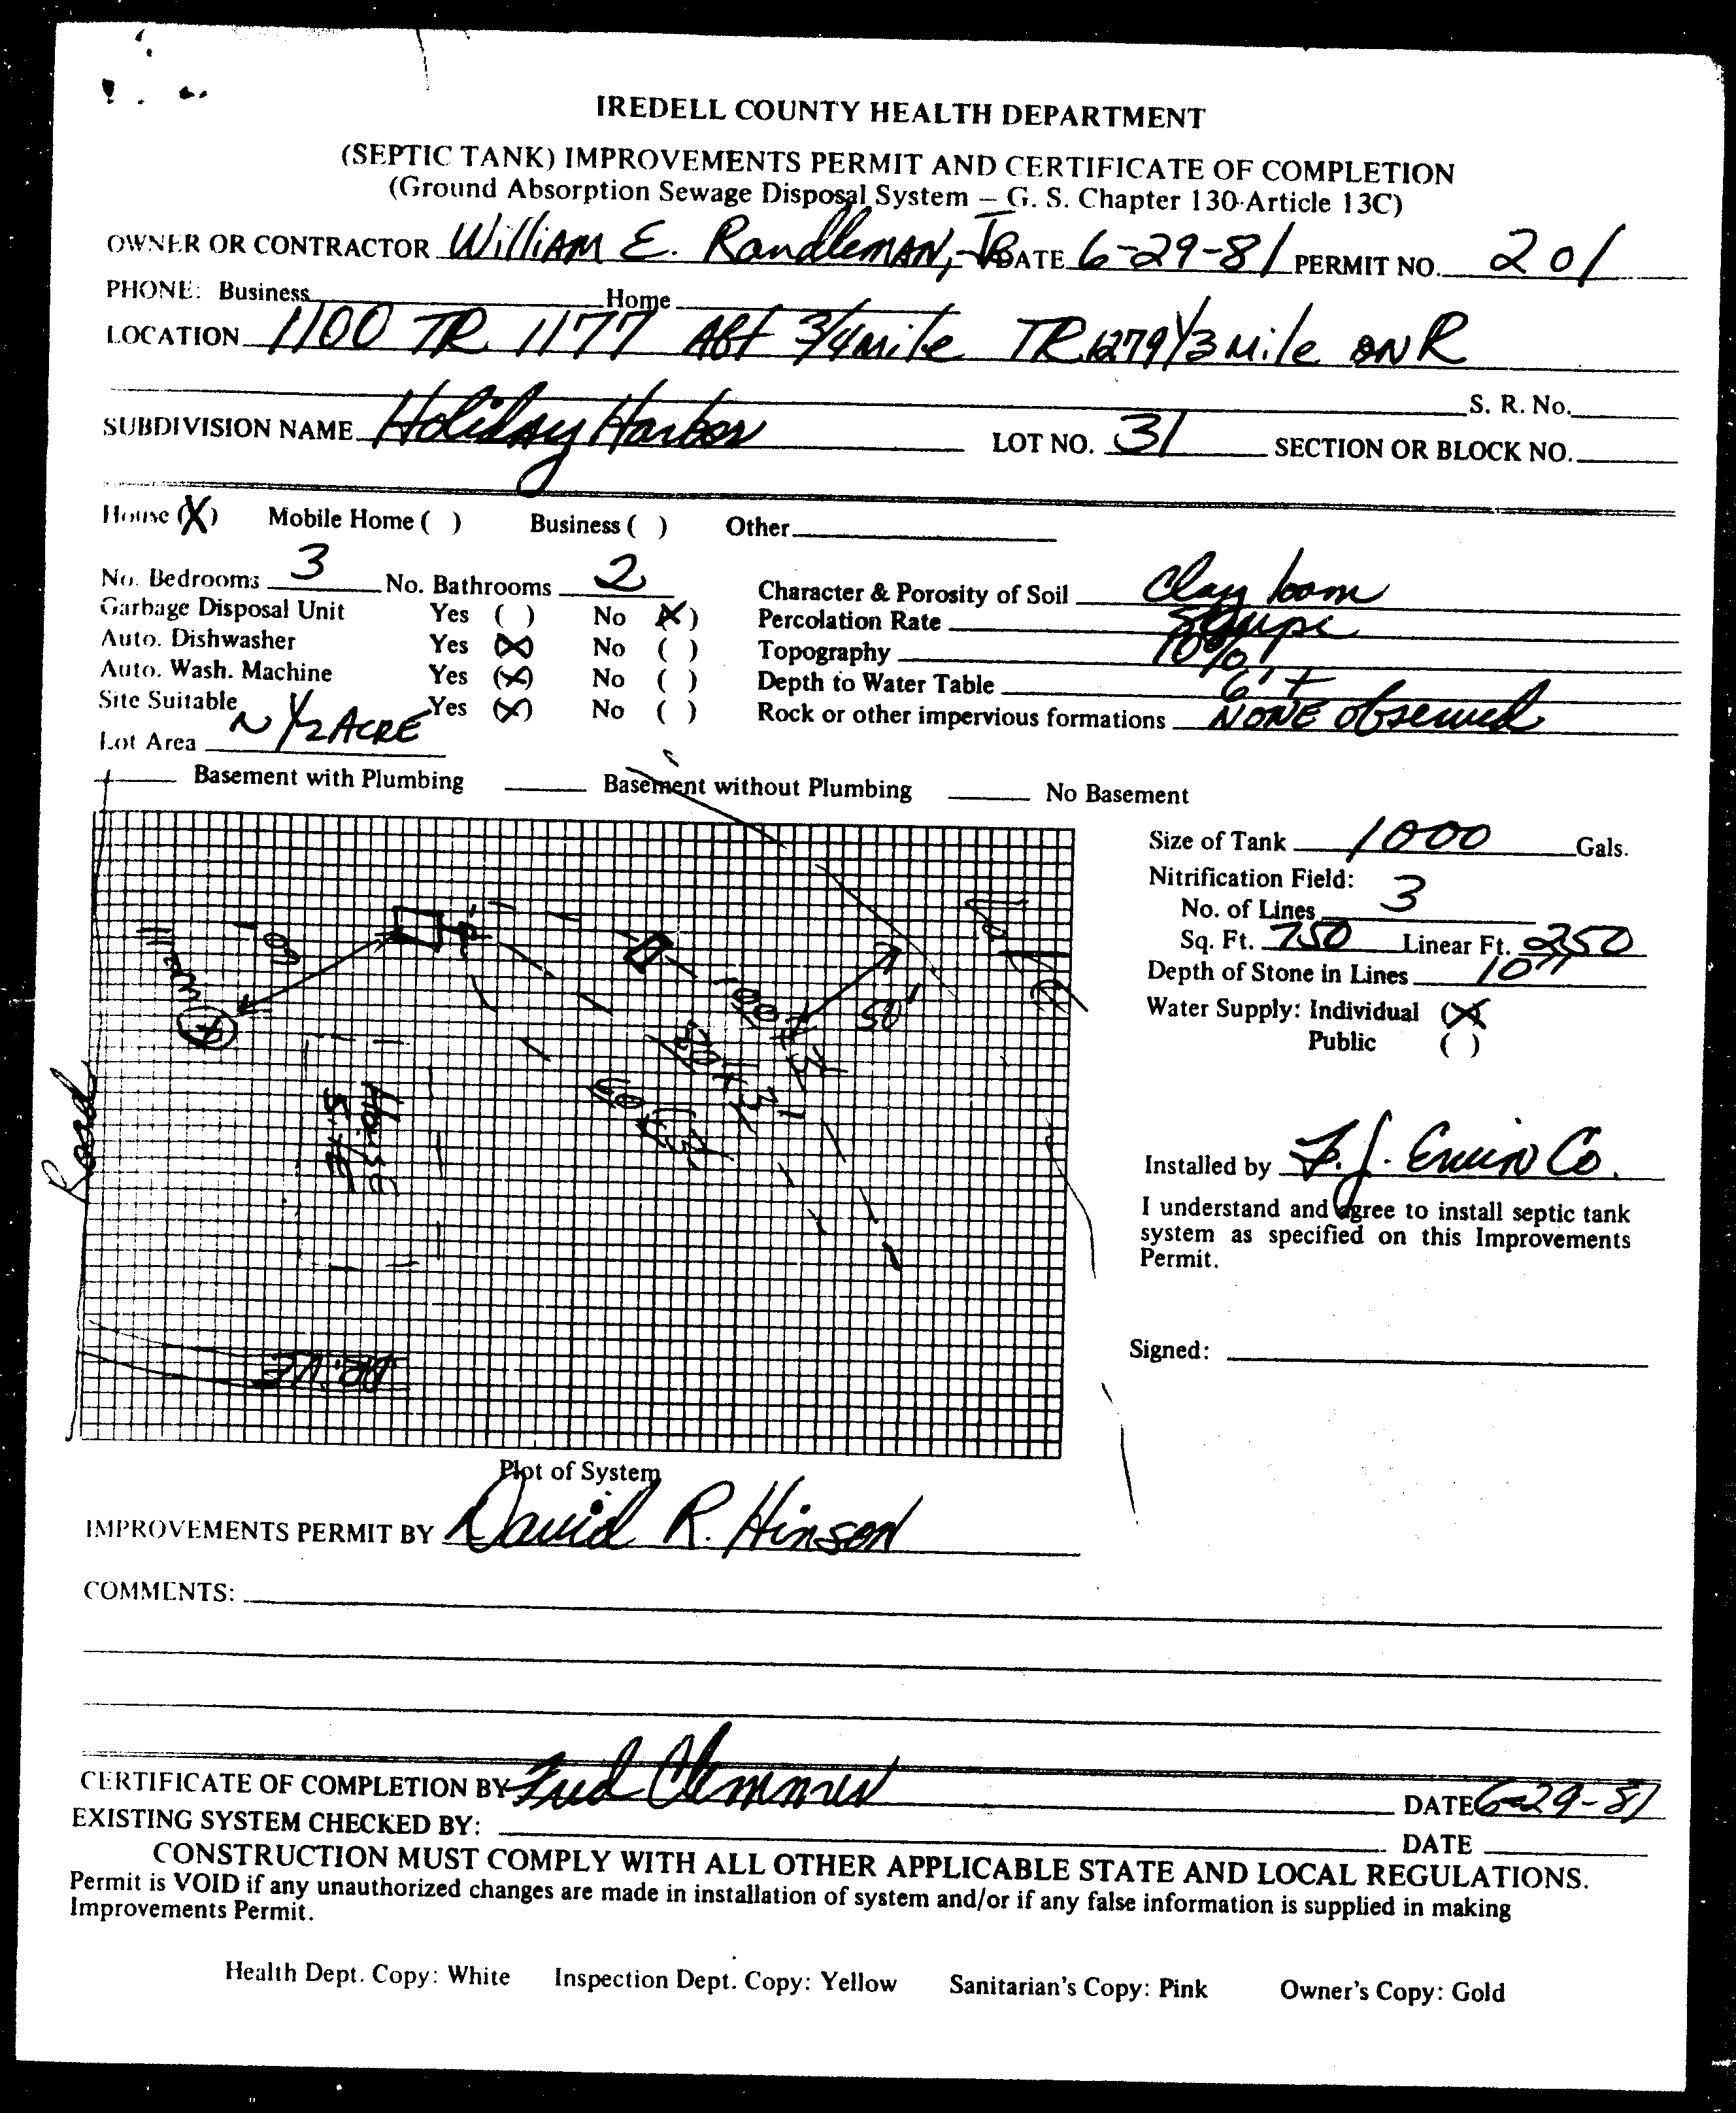 IREDELL COUNTY HEALTH DEPARTMENT
(SEPTIC TANK) IMPROVEMENTS PERMIT AND CERTIFICATE OF COMPLETION
(Ground Absorption Sewage Disposal System – G. S. Chapter 130-Article 13C)
OWNER OR CONTRACTOR William E. Randleman, JR DATE 6-29-81 PERMIT NO. 201
PHONE: Business Home
LOCATION 1100 TR 1177 Abt 3/4 mile TR 1279 1/3 mile on R
S. R. No.
SUBDIVISION NAME Holiday Harbor LOT NO. 31 SECTION OR BLOCK NO.
House (X) Mobile Home ( ) Business ( ) Other
No. Bedrooms 3 No. Bathrooms 2 Character & Porosity of Soil Clay loam
Garbage Disposal Unit Yes ( ) No (X) Percolation Rate 50 mpi
Auto. Dishwasher Yes (X) No ( ) Topography 10%
Auto. Wash. Machine Yes (X) No ( ) Depth to Water Table 6'+
Site Suitable Yes (X) No ( ) Rock or other impervious formations NONE observed
Lot Area ~ 1/2 ACRE
Basement with Plumbing Basement without Plumbing No Basement
Size of Tank 1000 Gals.
Nitrification Field:
No. of Lines 3
Sq. Ft. 750 Linear Ft. 250
Depth of Stone in Lines 10"
Water Supply: Individual (X)
Public ( )
Road
House
Site
50'
DRIVE
Installed by F. J. Erwin Co.
I understand and agree to install septic tank
system as specified on this Improvements
Permit.
Signed:
Plot of System
IMPROVEMENTS PERMIT BY David R. Hinson
COMMENTS:
CERTIFICATE OF COMPLETION BY Fred Clemmer DATE 6-29-81
EXISTING SYSTEM CHECKED BY: DATE
CONSTRUCTION MUST COMPLY WITH ALL OTHER APPLICABLE STATE AND LOCAL REGULATIONS.
Permit is VOID if any unauthorized changes are made in installation of system and/or if any false information is supplied in making
Improvements Permit.
Health Dept. Copy: White Inspection Dept. Copy: Yellow Sanitarian's Copy: Pink Owner's Copy: Gold